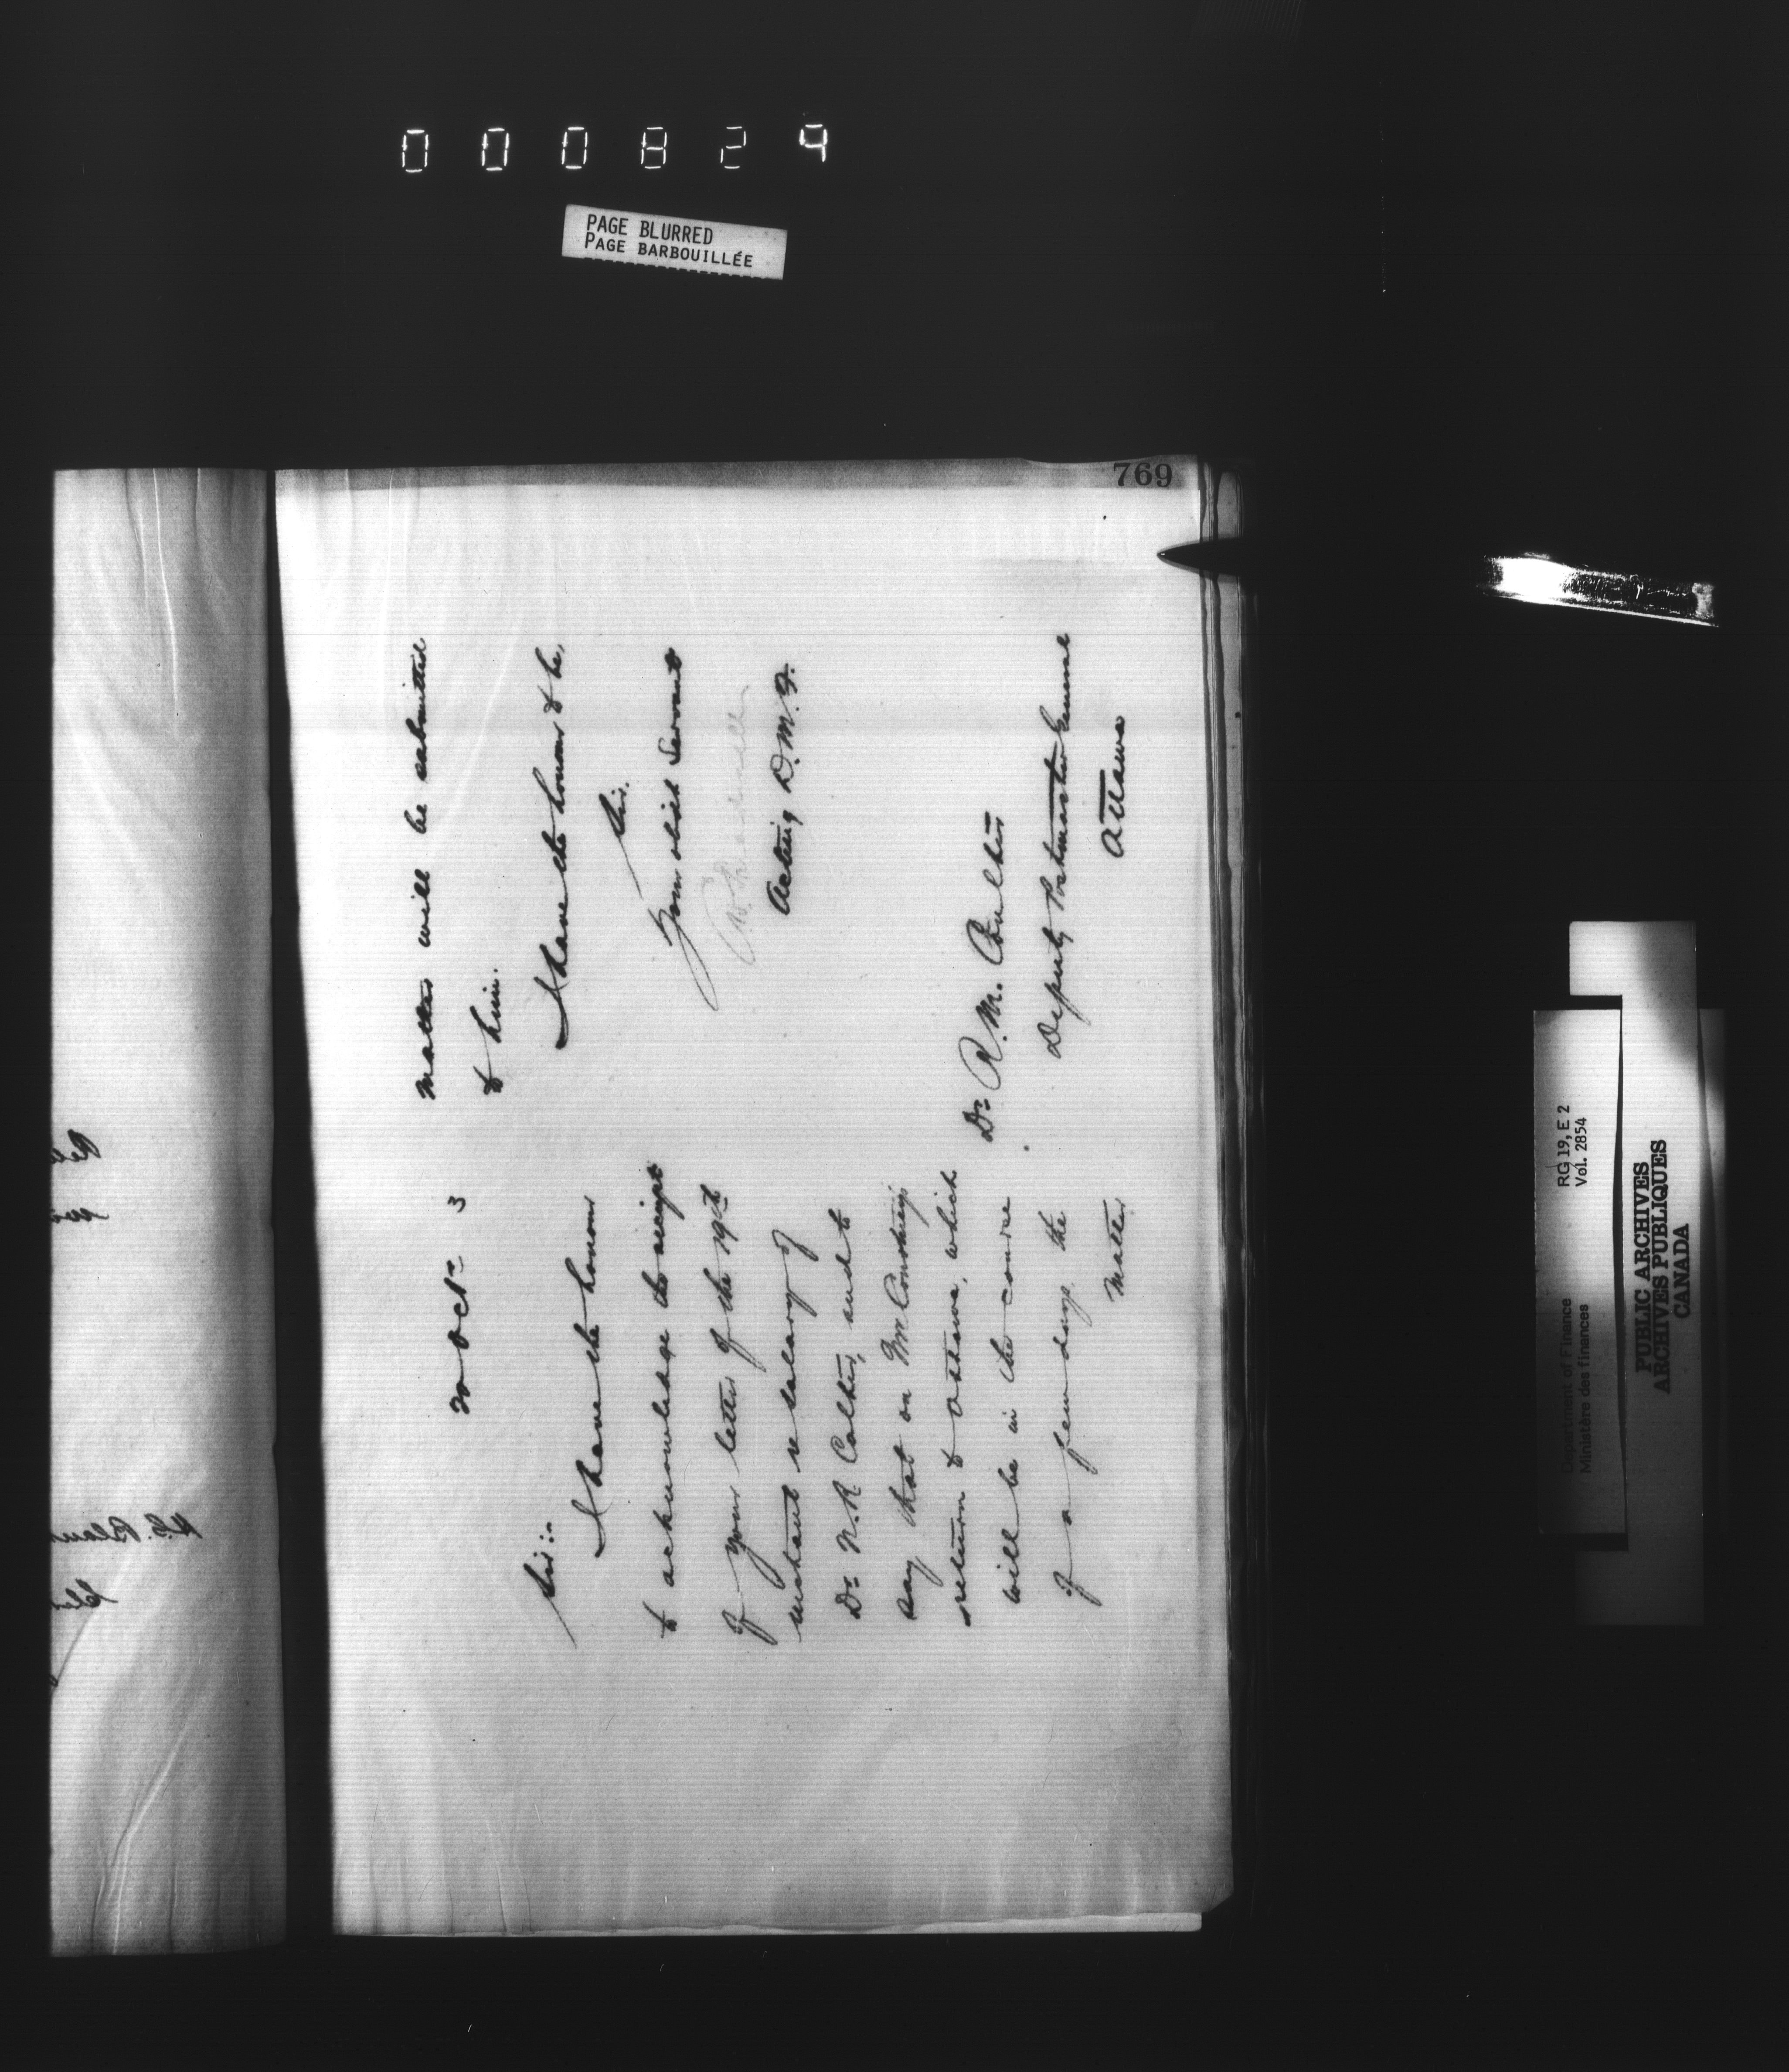 000824
PAGE BLURRED
PAGE BARBOUILLÉE
769
20 Oct: 3
Sir:-
I have the honour
to acknowledge the receipt
of your letter of the 19th
instant re salary of
Dr. N. R. Coulter, and to
say that on Mr Courtney's
return to Ottawa, which
will be in the course
of a few days, the
matter
matter will be submitted
to him.
I have the honour to be,
Sir,
Your obdt Servant
Acting D.M.F.
Dr. R. M. Coulter
Deputy Postmaster General
Ottawa
Department of Finance
Ministère des finances
RG 19, E 2
Vol. 2854
PUBLIC ARCHIVES
ARCHIVES PUBLIQUES
CANADA